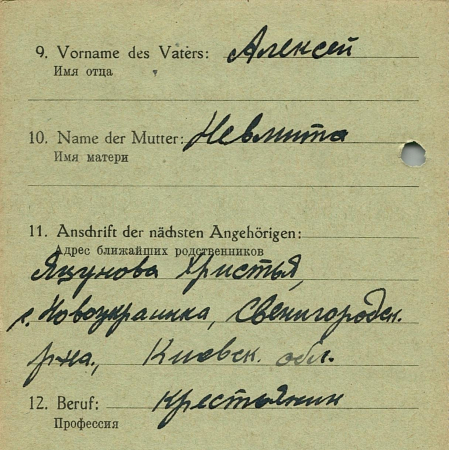 9. Vorname des Vaters: Алексей
Имя отца
10. Name der Mutter: Невмита
Имя матери
11. Anschrift der nächsten Angehörigen:
Адрес ближайших родственников
Яцунова Христья,
с. Новоукраинка, Свенигородск.
р-на., Киевск. обл.
12. Beruf: крестьянин
Профессия